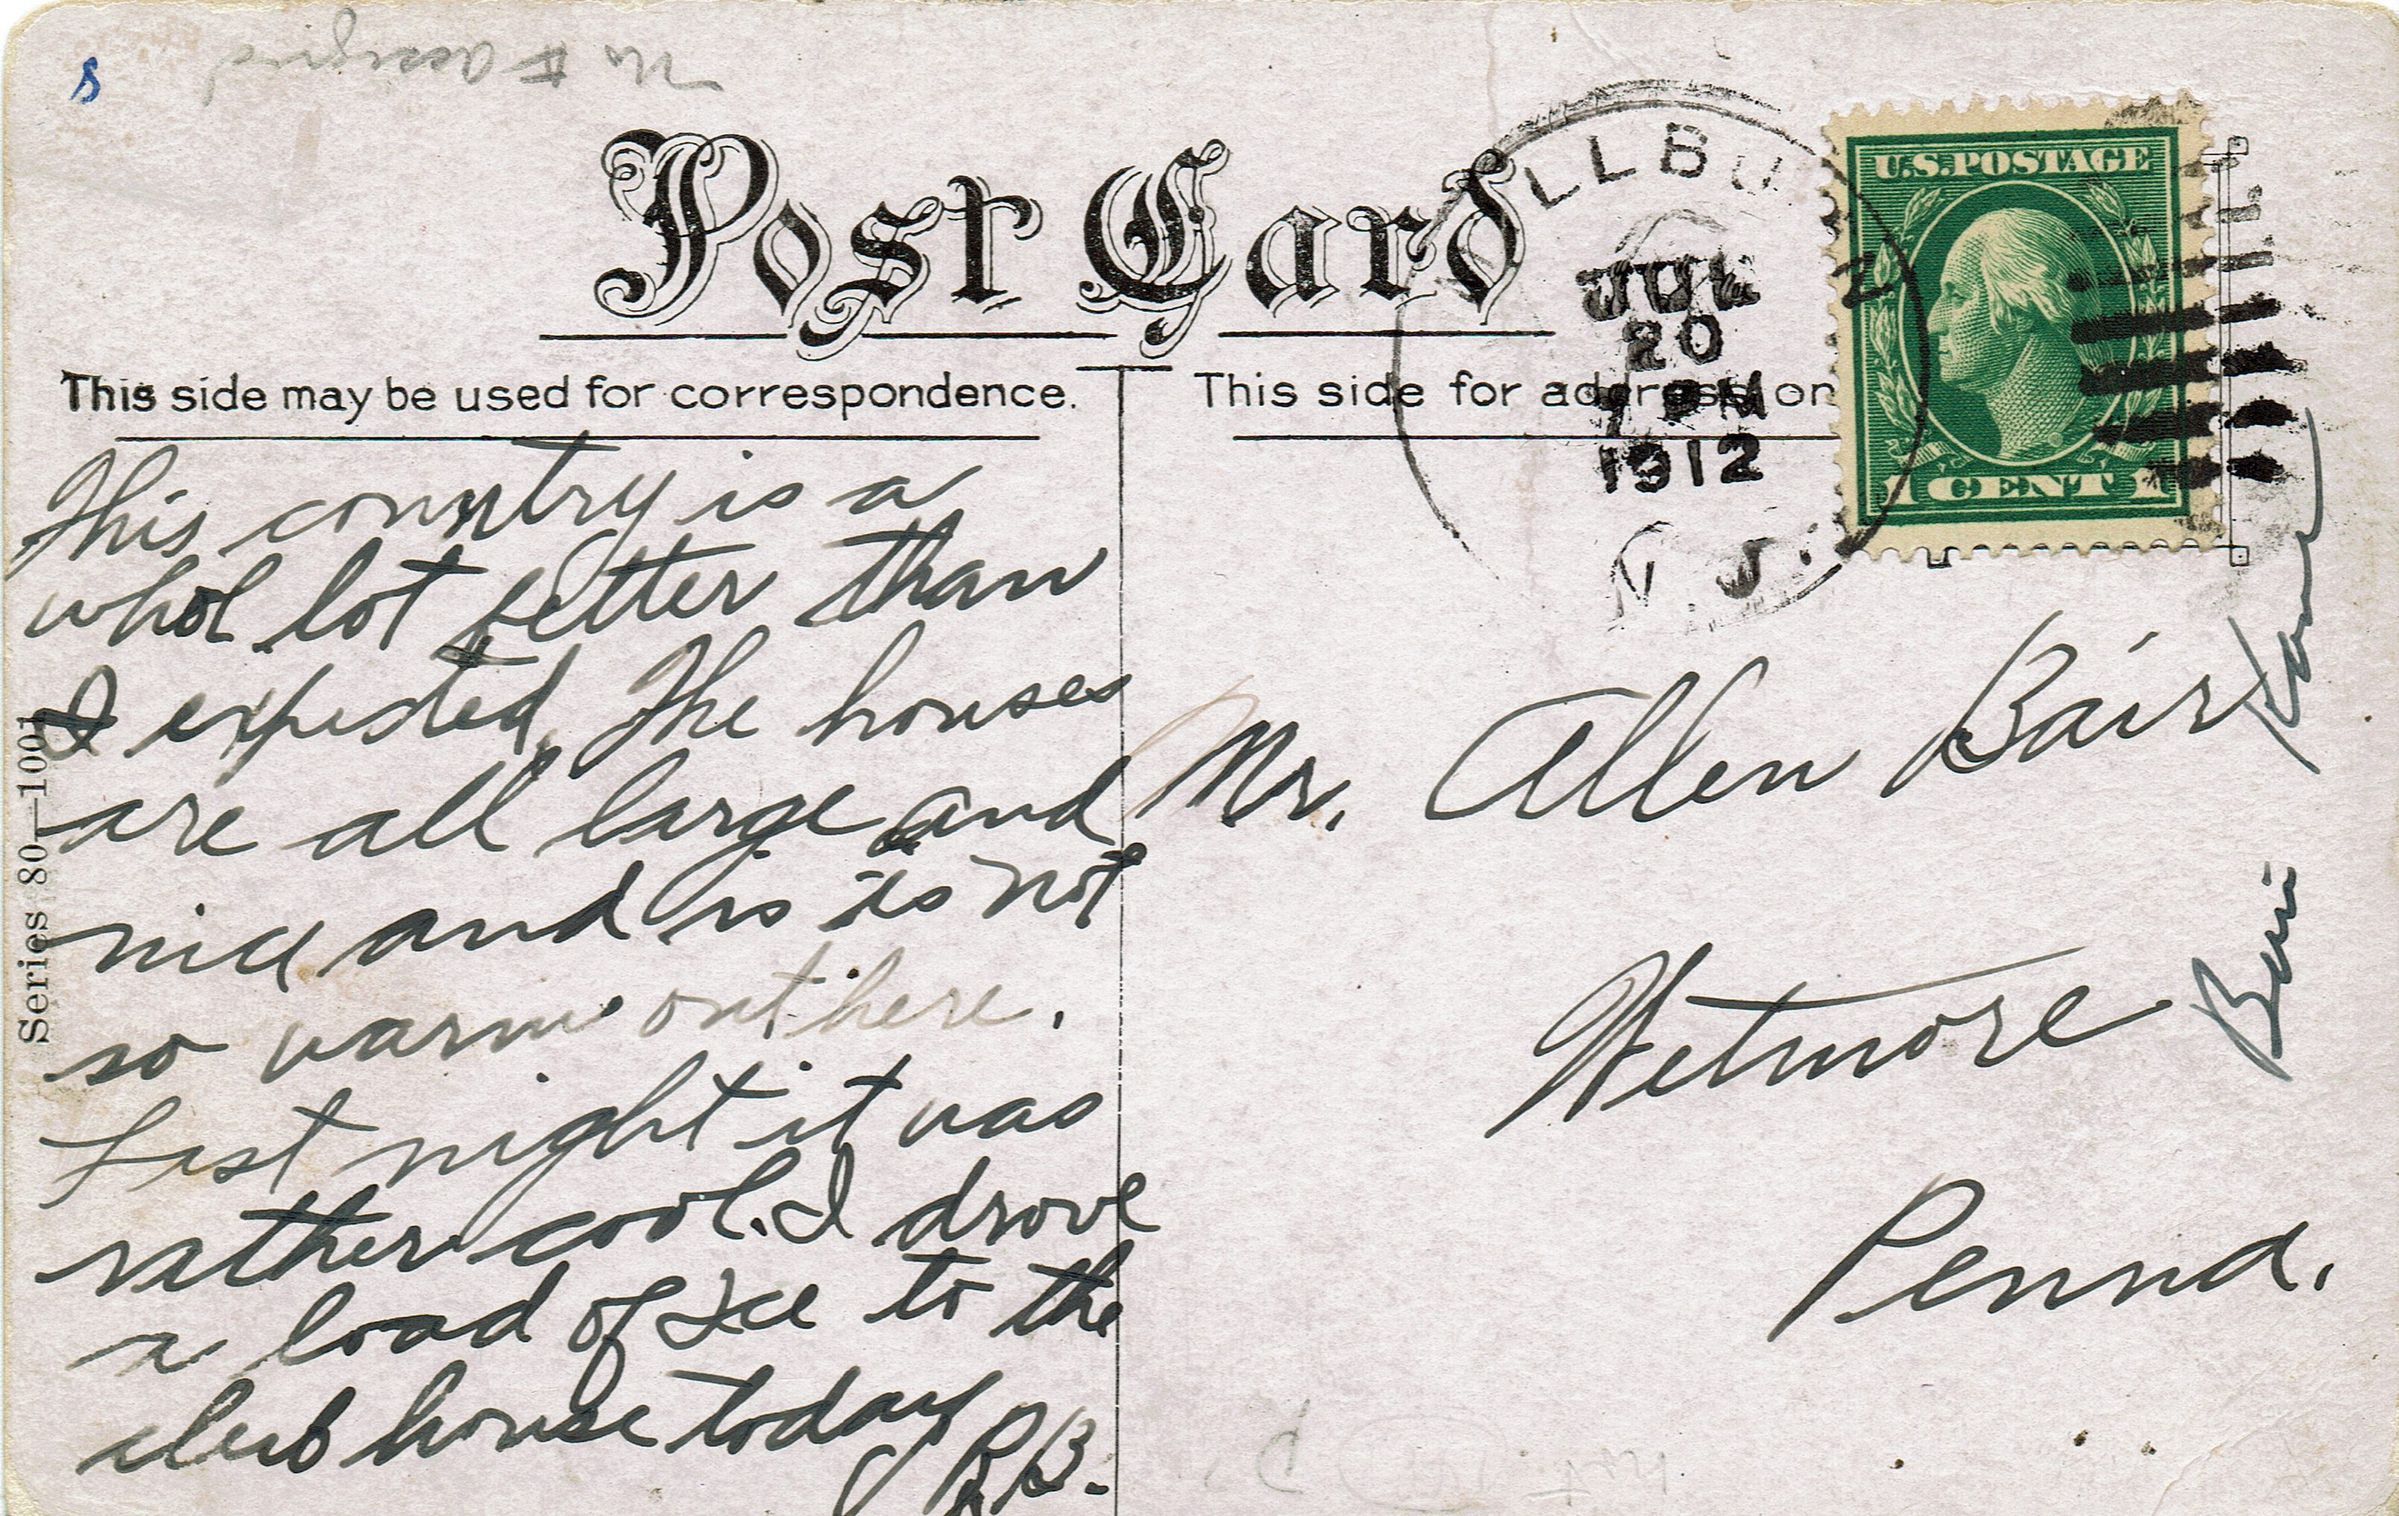 No # assigned
8
Post Card
This side may be used for correspondence.
This side for address on
LLBU
JUL
20
7 PM
1912
N.J.
U.S. POSTAGE
1 CENT 1
This country is a
whol lot better than
I expected, The houses
are all large and
nice and is is not
so warm out here.
Last night it was
rather cool. I drove
a load of Ice to the
club house today
R.B.
Series 80—1001
Mr. Allen Bair
Wetmore
Penna.
Kane
Bair